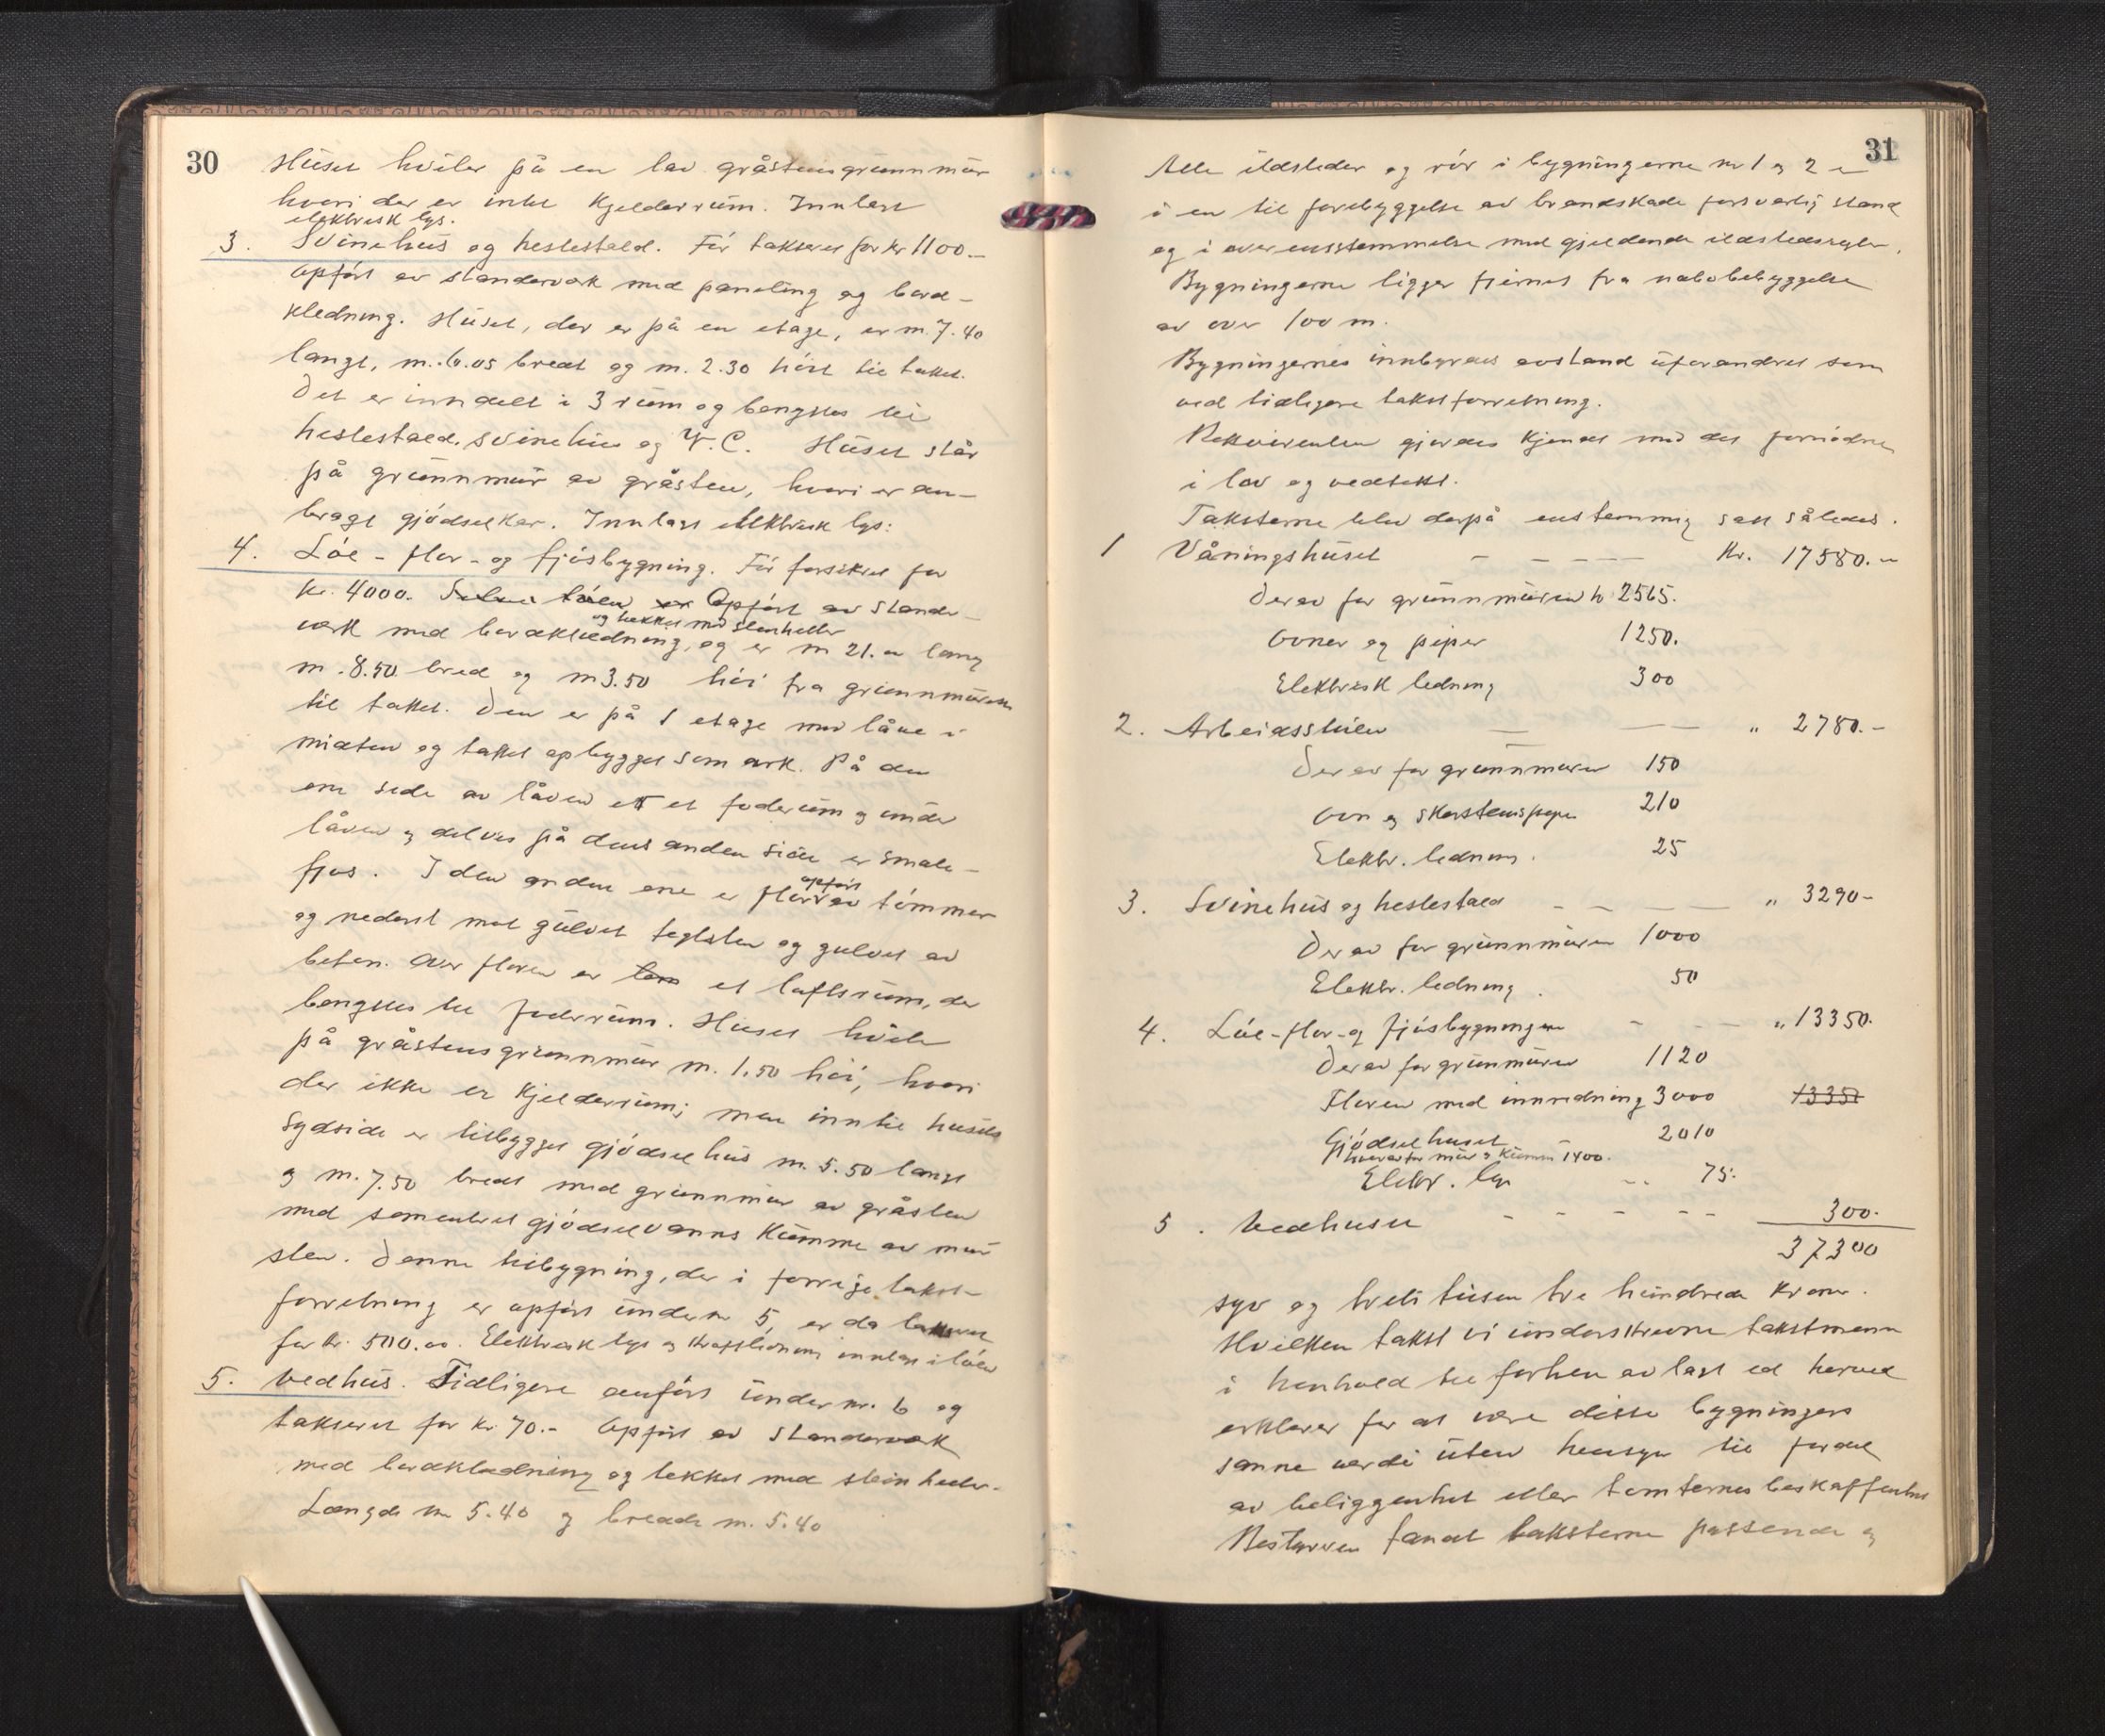 30
Huset hviler på en lav gråstensgrunnmur
hvori der er intet Kjelderrum. Innlagt
elektrisk lys.
3. Svinehus og hestestald. Før takseret for kr 1100.-
Opført av standerverk med paneling og bord-
kledning. Huset, der er på en etage, er m. 7.40
langt, m. 6.05 bredt og m. 2.30 höit til taket.
Det er inndelt i 3 rum og benyttes til
hestestald, svinehus og W.C. Huset står
på grunnmur av gråsten, hvori er an-
bragt gjödselkar. Innlagt elektrisk lys.
4. Löe- flor- og fjösbygning. Før forsikret for
kr. 4000. Selve löen er Opført av stander-
og tekket med stenheller
verk med bordkledning, og er m 21.- lang
m. 8.50 bred og m 3.50 höi fra grunnmuren
til taket. Den er på 1 etage med låve i
midten og taket opbygget som ark. På den
ene side av låven er et foderum og under
låven og delvis på dens anden side er smale-
fjos. I den anden ene er floren av tömmer
opført
og nederst mot gulvet teglsten og gulvet av
beton. Over floren er et loftsrum, der
benyttes til foderrum. Huset hviler
på gråstensgrunnmur m. 1.50 höi, hvori
der ikke er Kjelderrum; men inntil husets
sydside er tilbygget gjödselhus m. 5.50 langt
og m. 7.50 bredt med grunnmur av gråsten
med sementert gjödselvanns Kumme av mur
sten. Denne tilbygning, der i forrige takst-
forretning er opført under nr 5, er da takseret
for kr. 500.00. Elektrisk lys og Kraftledning innlagt i löen
5. Vedhus. Tidligere anført under nr. 6 og
takseret for kr 70.- Opført av standerverk
med bordkledning og tekket med steinheller.
Længde m 5.40 og bredde m. 5.40
31
Alle ildsteder og rör i bygningerne nr 1 og 2 er
i en til forebyggelse av brandskade forsvarlig stand
og i overensstemmelse med gjeldende ildstedsregler.
Bygningerne ligger fjernet fra nabobebyggelse
av over 100 m.
Bygningernes innbyrdes avstand uforandret som
ved tidligere takstforretning.
Rekvirenten gjordes Kjendt med det fornödne
i lov og vedtekt.
Taksterne blev derpå enstemmig satt således.
1 Våningshuset - - - - Kr. 17580.-
Derav for grunnmuren kr 2565.
Ovner og piper 1250.
Elektrisk ledning 300
2. Arbeidsstuen - - " 2780.-
Derav for grunnmuren 150
Ovn og skorstenspipe 210
Elektr. ledning. 25
3. Svinehus og hestestald - - - " 3290-
Derav for grunnmuren 1000
Elektr. ledning . 50
4. Löe-flor-og fjösbygningen - - - " 13350.
Derav for grunmuren 1120
Floren med innredning 3000 13350
Gjödselhuset 2010
hvorav for mur og Kumme 1400.
Elektr. lys -- 75.
5. Vedhuset - - - - - - 300.
37300
syv og treti tusen tre hundrede Kroner.
Hvilken takst vi underskrevne takstmenn
i henhold til forhen avlagt ed herved
erklærer for at være disse bygningers
sanne verdi uten hensyn til fordel
av beliggenhet eller tomternes beskaffenhet
Bestyreren fandt taksterne passende og